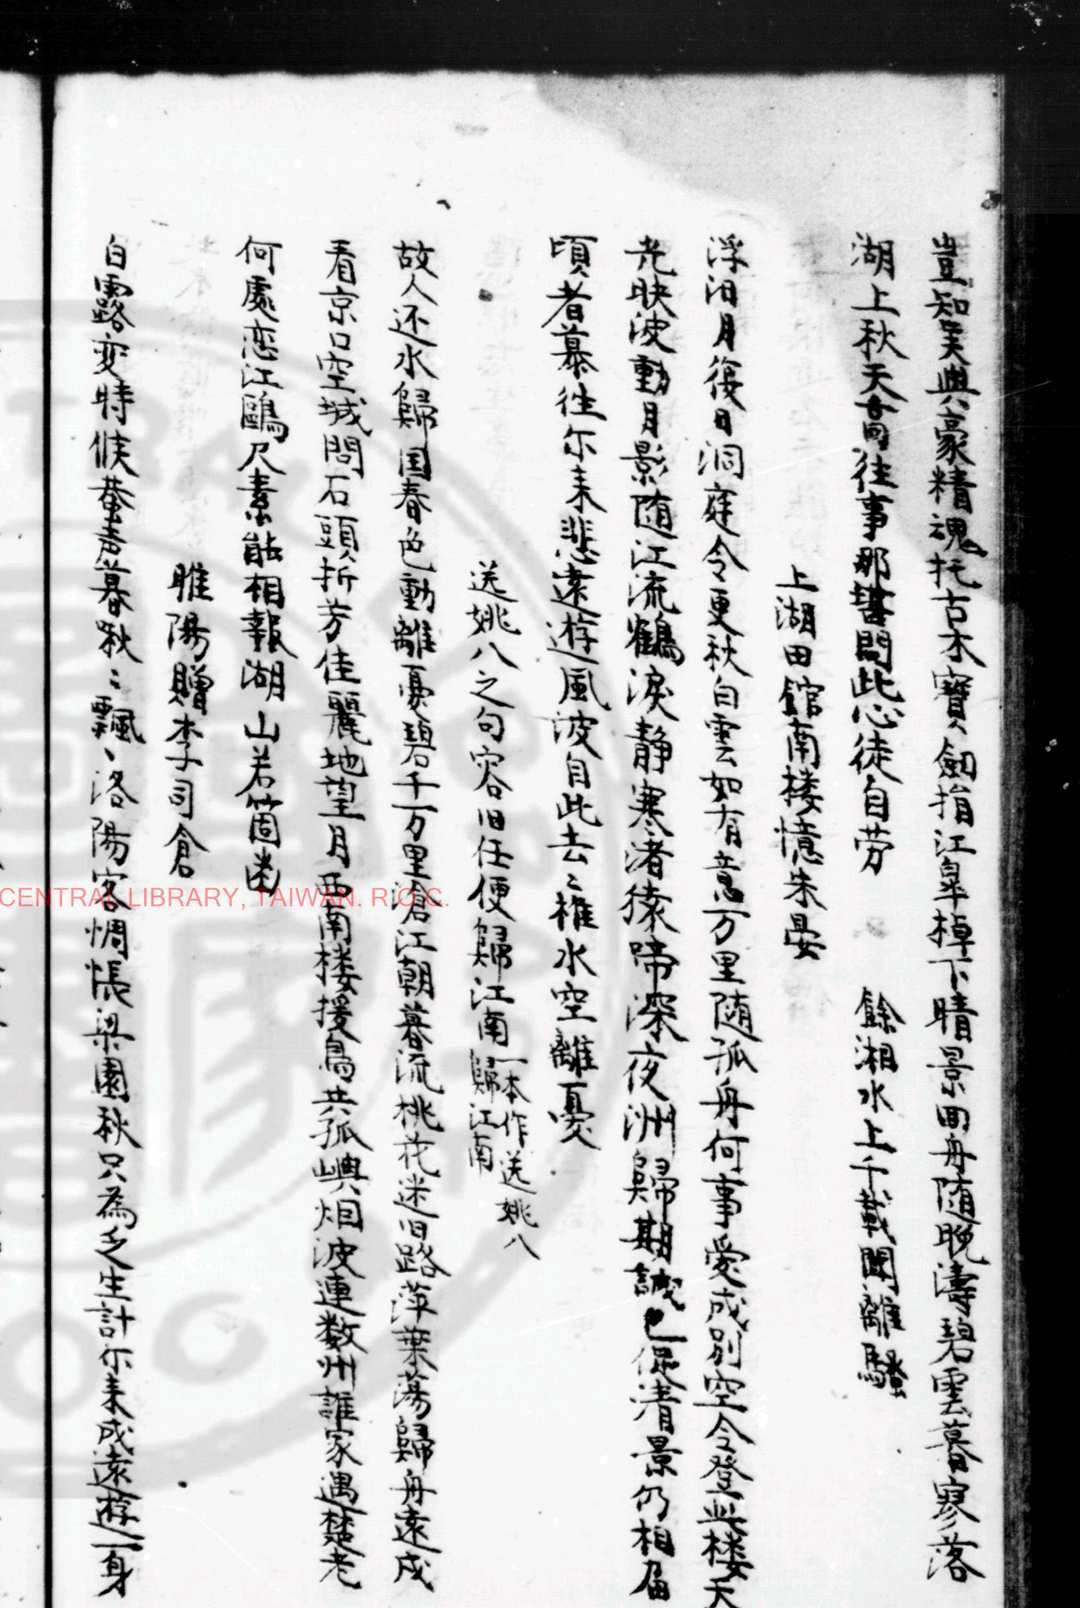 豈知異興豪精魂托古木寶劍捐江皐棹下晴景回舟随晚濤碧雲暮寥落
湖上秋天高往事那堪問此心徒自劳　餘湘水上千載聞離騷
上湖田館南楼憶朱晏
浮汨月復日洞庭今更秋白雲如有意万里随孤舟何事愛成别空今登此楼天
光映波動月影随江流鶴淚静寒渚猿啼深夜洲歸期誠已促清景仍相留
頃者慕往尔来悲遠遊風波自此去々桂水空離憂
送姚八之句容旧任便歸江南一本作送姚八歸江南
故人还水歸国春色動離憂碧千万里滄江朝暮流桃花迷旧路萍葉蕩歸舟遠戍
看京口空城問石頭折芳佳麗地望月西南楼援鳥共孤嶼烟波連数州誰家遇楚老
何處恋江鷗尺素能相報湖山若箇幽
睢陽贈李司倉
白露变時候蛩声暮啾々飄々洛陽客惆悵梁園秋只為乏生計尔来成遠遊一身
CENTRAL LIBRARY, TAIWAN. R.O.C.